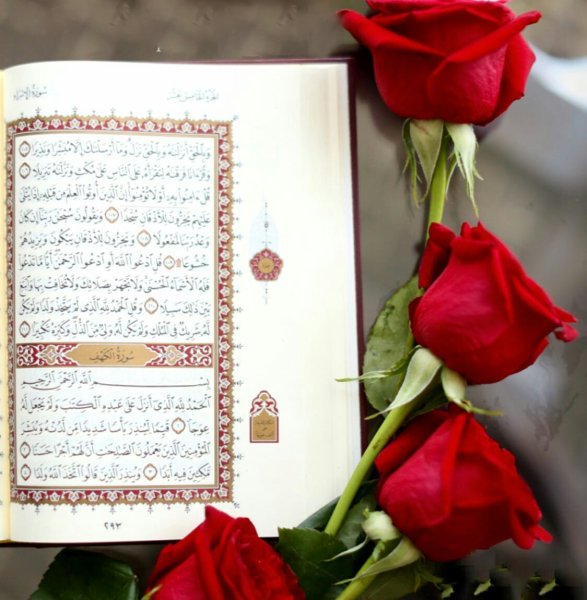 سورة الإسراء
الجزء الخامس عشر
وَبِالْحَقِّ أَنزَلْنَاهُ وَبِالْحَقِّ نَزَلَ وَمَا أَرْسَلْنَاكَ إِلَّا مُبَشِّرًا وَنَذِيرًا ١٠٥
وَقُرْآنًا فَرَقْنَاهُ لِتَقْرَأَهُ عَلَى النَّاسِ عَلَى مُكْثٍ وَنَزَّلْنَاهُ تَنزِيلًا ١٠٦
قُلْ آمِنُوا بِهِ أَوْ لَا تُؤْمِنُوا إِنَّ الَّذِينَ أُوتُوا الْعِلْمَ مِن قَبْلِهِ إِذَا يُتْلَى
عَلَيْهِمْ يَخِرُّونَ لِلْأَذْقَانِ سُجَّدًا ١٠٧ وَيَقُولُونَ سُبْحَانَ رَبِّنَا إِن كَانَ
وَعْدُ رَبِّنَا لَمَفْعُولًا ١٠٨ وَيَخِرُّونَ لِلْأَذْقَانِ يَبْكُونَ وَيَزِيدُهُمْ
خُشُوعًا ۩ ١٠٩ قُلِ ادْعُوا اللَّهَ أَوِ ادْعُوا الرَّحْمَنَ أَيًّا مَّا تَدْعُوا
فَلَهُ الْأَسْمَاءُ الْحُسْنَى وَلَا تَجْهَرْ بِصَلَاتِكَ وَلَا تُخَافِتْ بِهَا وَابْتَغِ
بَيْنَ ذَلِكَ سَبِيلًا ١١٠ وَقُلِ الْحَمْدُ لِلَّهِ الَّذِي لَمْ يَتَّخِذْ وَلَدًا وَلَمْ يَكُن
لَّهُ شَرِيكٌ فِي الْمُلْكِ وَلَمْ يَكُن لَّهُ وَلِيٌّ مِّنَ الذُّلِّ وَكَبِّرْهُ تَكْبِيرًا ١١١
سُورَةُ الْكَهْفِ
بِسْمِ اللَّهِ الرَّحْمَنِ الرَّحِيمِ
الْحَمْدُ لِلَّهِ الَّذِي أَنزَلَ عَلَى عَبْدِهِ الْكِتَابَ وَلَمْ يَجْعَل لَّهُ
عِوَجًا ١ قَيِّمًا لِّيُنذِرَ بَأْسًا شَدِيدًا مِّن لَّدُنْهُ وَيُبَشِّرَ
الْمُؤْمِنِينَ الَّذِينَ يَعْمَلُونَ الصَّالِحَاتِ أَنَّ لَهُمْ أَجْرًا حَسَنًا ٢
مَّاكِثِينَ فِيهِ أَبَدًا ٣ وَيُنذِرَ الَّذِينَ قَالُوا اتَّخَذَ اللَّهُ وَلَدًا ٤
٢٩٣